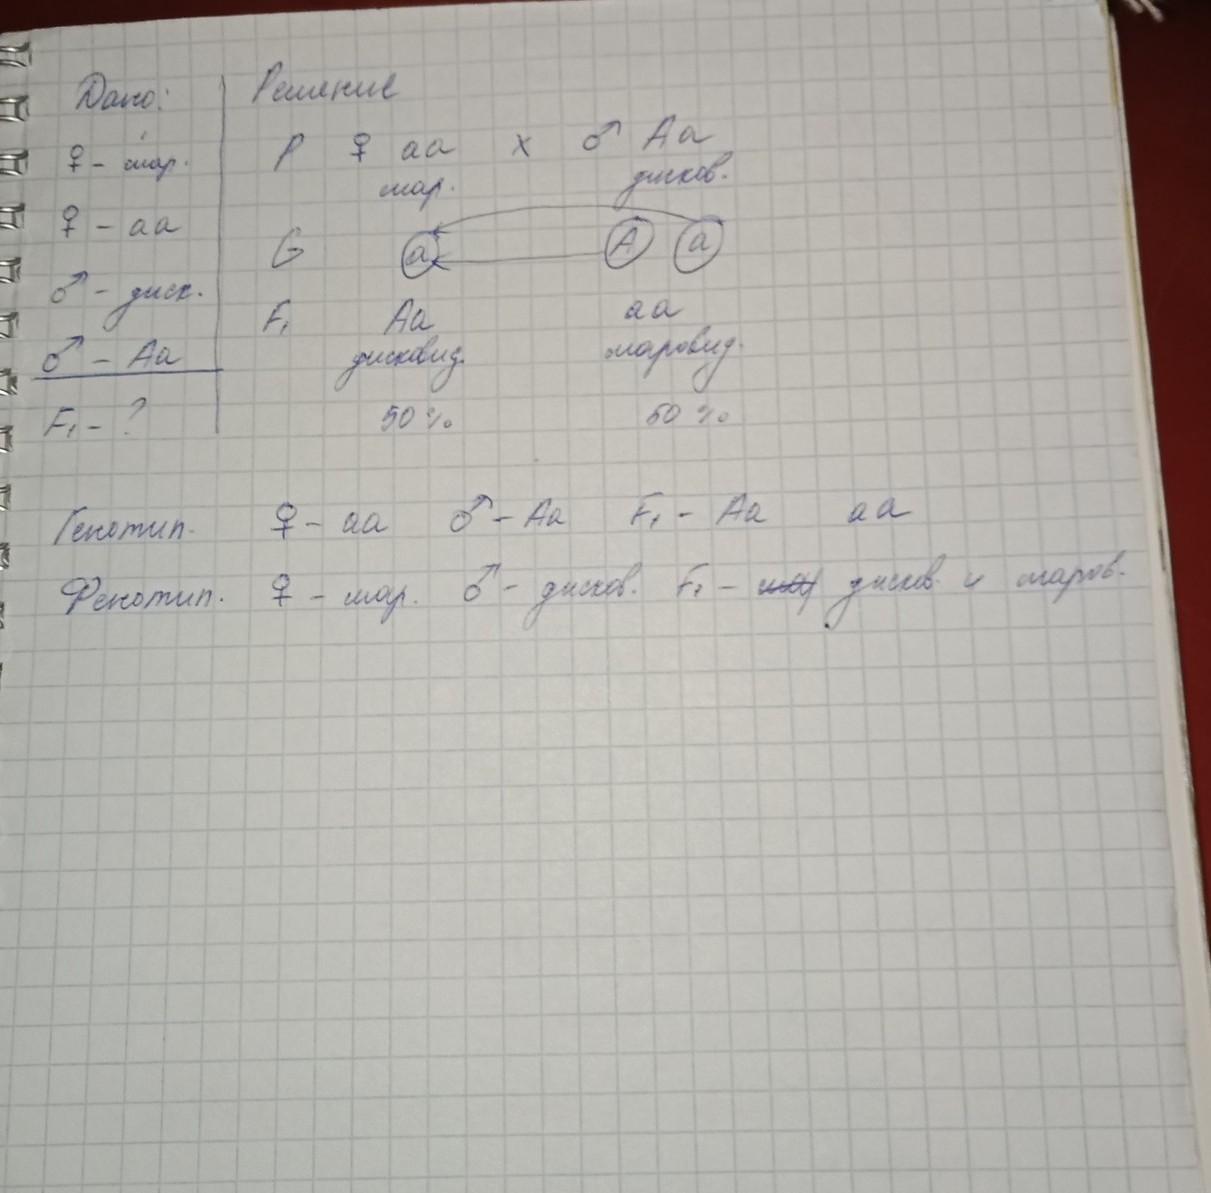 Дано: Решение
♀ - шар. P ♀ аа x ♂ Аа
шар. дисков.
♀ - аа
G а А а
♂ - диск.
F₁ Аа аа
♂ - Аа дисковид. шаровид.
F₁ - ? 50 % 50 %
Генотип. ♀ - аа ♂ - Аа F₁ - Аа аа
Фенотип. ♀ - шар. ♂ - дисков. F₁ - дисков. и шаров.